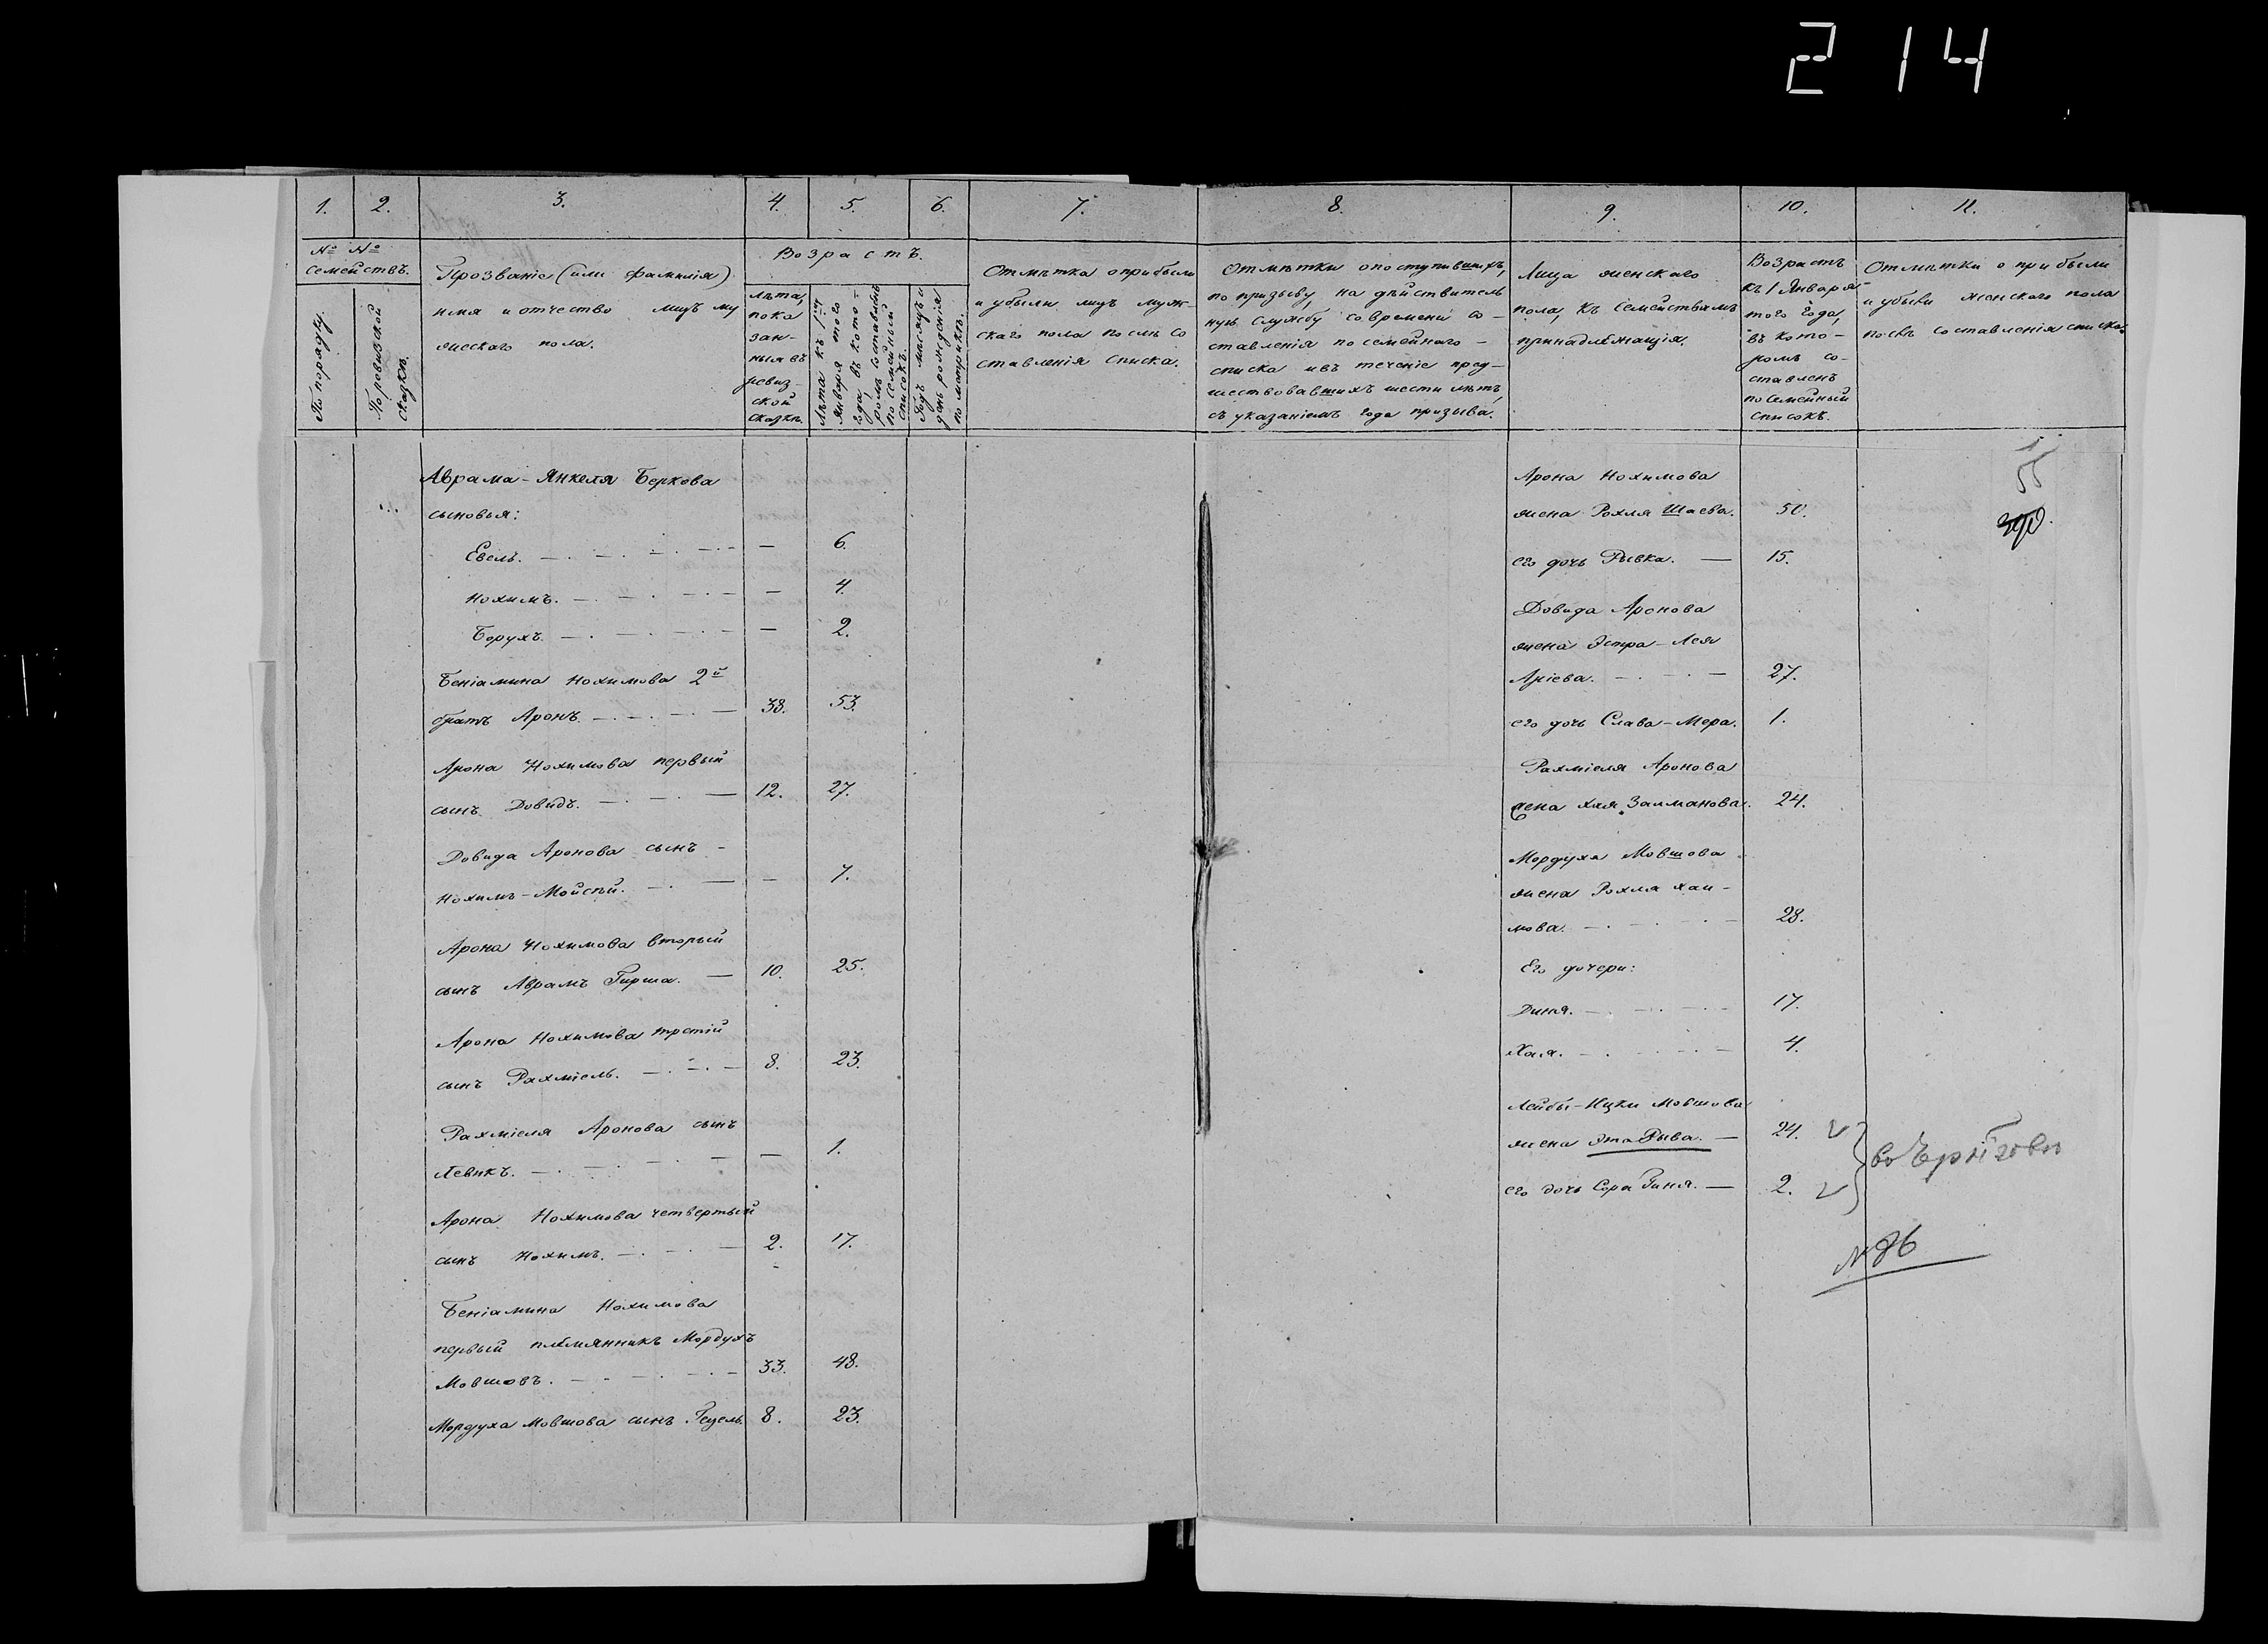 214
1. 2. 3. 4. 5. 6. 7. 8. 9. 10. 11.
№ №
семействъ.
По порядку.
По ревизской
сказкѣ.
Прозваніе (или фамилія)
имя и отчество лицъ му
жескаго пола.
Возрастъ.
лѣта,
пока
зан-
ныя въ
ревиз-
ской
сказкѣ.
Лѣта къ 1му
января того
года, въ кото-
ромъ составленъ
посемейный
списокъ.
Годъ мѣсяцъ и
день рожденія
по метрикѣ.
Отмѣтка о прибыли
и убыли лицъ муж-
скаго пола послѣ со
ставленія списка.
Отмѣтки о поступившихъ,
по призыву, на дѣйствитель
ную службу со времени со-
ставленія посемейнаго -
списка и въ теченіе пред-
шествовавшихъ шести лѣтъ,
съ указаніемъ года призыва.
Лица женскаго
пола, къ семействамъ
принадлежащія.
Возрастъ
къ 1 Января
того года,
въ кото-
ромъ со-
ставленъ
посемейный
списокъ.
Отмѣтки о прибыли
и убыли женскаго пола
послѣ составленія списка
Аврама-Янкеля Беркова
сыновья:
Евель. — 6.
Нохимъ. — 4.
Борухъ. — 2.
Беніамина Нохимова 2й
братъ Аронъ. — 38. 53.
Арона Нохимова первый
сынъ Довидъ. — 12. 27.
Довида Аронова сынъ -
Нохимъ-Мойсѣй. — 7.
Арона Нохимова вторый
сынъ Аврамъ Гирша. — 10. 25.
Арона Нохимова третій
сынъ Рахміель. — 8. 23.
Рахміеля Аронова сынъ
Левикъ. — 1.
Арона Нохимова четвертый
сынъ Нохимъ. — 2. 17.
Беніамина Нохимова
первый племянникъ Мордухъ
Мовшовъ. — 33. 48.
Мордуха Мовшова сынъ Гецель 8. 23.
Арона Нохимова
жена Рохля Шаева. 50.
его дочь Рывка. — 15.
Довида Аронова
жена Эстра-Лея
Аріева. — 27.
его дочь Слава-Мера. 1.
Рахміеля Аронова
жена Хая Залманова. 24.
Мордуха Мовшова
жена Рохля Хаи-
мова. — 28.
Его дочери:
Диня. — 17.
Хая. — 4.
Лейбы-Ицки Мовшова
жена Эта Рыва. — 24.
его дочь Сора Гиня. — 2.
55
№ 86